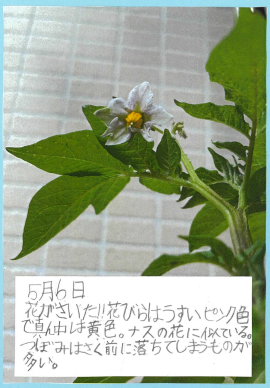 5月6日
花がさいた!!花びらはうすいピンク色
で真ん中は黄色。ナスの花に似ている。
つぼみはさく前に落ちてしまうものが
多い。